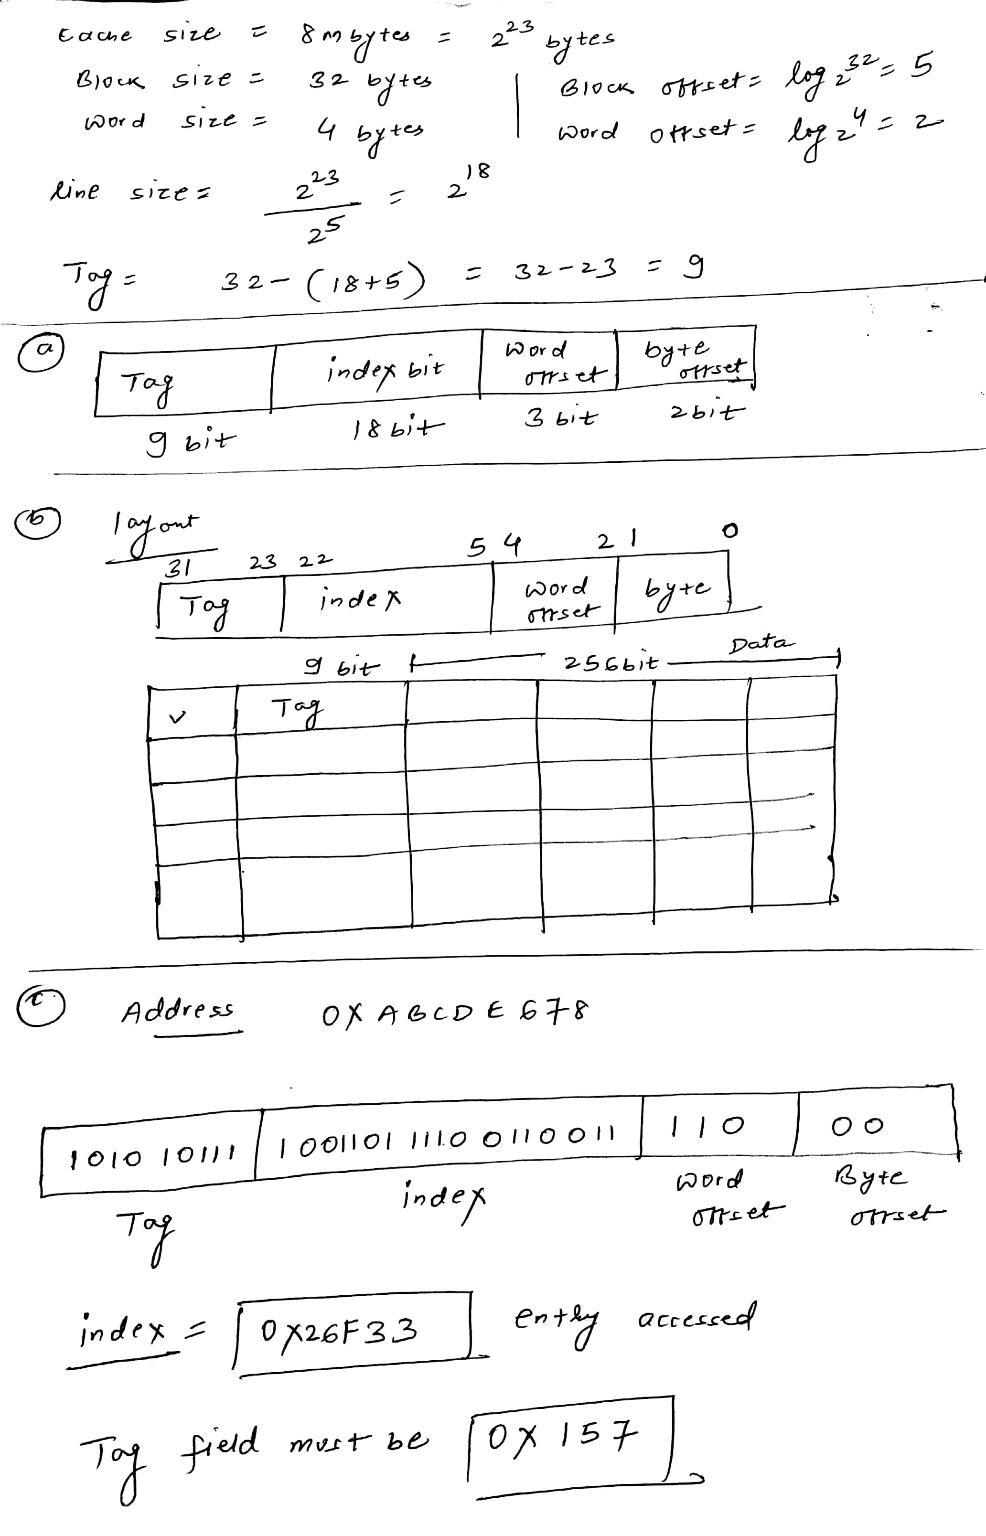 Cache size = 8m bytes = 2^23 bytes
Block size = 32 bytes | Block offset = log2 32 = 5
word size = 4 bytes | word offset = log2 4 = 2
line size = 2^23 / 2^5 = 2^18
Tag = 32-(18+5) = 32-23 = 9
(a)
Tag | index bit | word offset | byte offset
9 bit 18 bit 3 bit 2 bit
(b) layout
31 23 22 5 4 2 1 0
Tag | index | word offset | byte
9 bit 256 bit Data
v | Tag
(c) Address 0X ABCDE678
1010 10111 | 1001101 1110 0110011 | 110 | 00
Tag index word offset Byte offset
index = 0X26F33 entry accessed
Tag field must be 0X 157